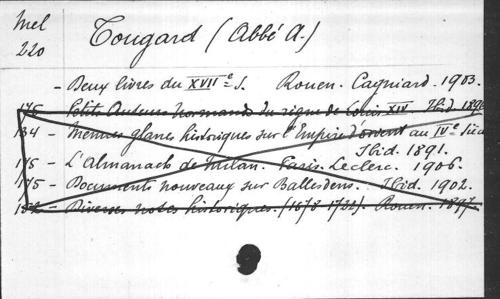 Mel
220
Tougard (Abbé A.)
- Deux livres du XVIIe S. Rouen. Cagniard. 1903.
175 - Petits Auteurs Normands du règne de Louis XIV Ibid
184 - Menues glanes historiques sur l'Empire d'Orient au IVe
Ibid. 1891.
175 - L'Almanach de Milan. Paris. Leclerc. 1906.
175 - Documents nouveaux sur Ballesdens. Ibid. 1902.
- Diverses notes historiques. (1678-1722). Rouen. 1897.